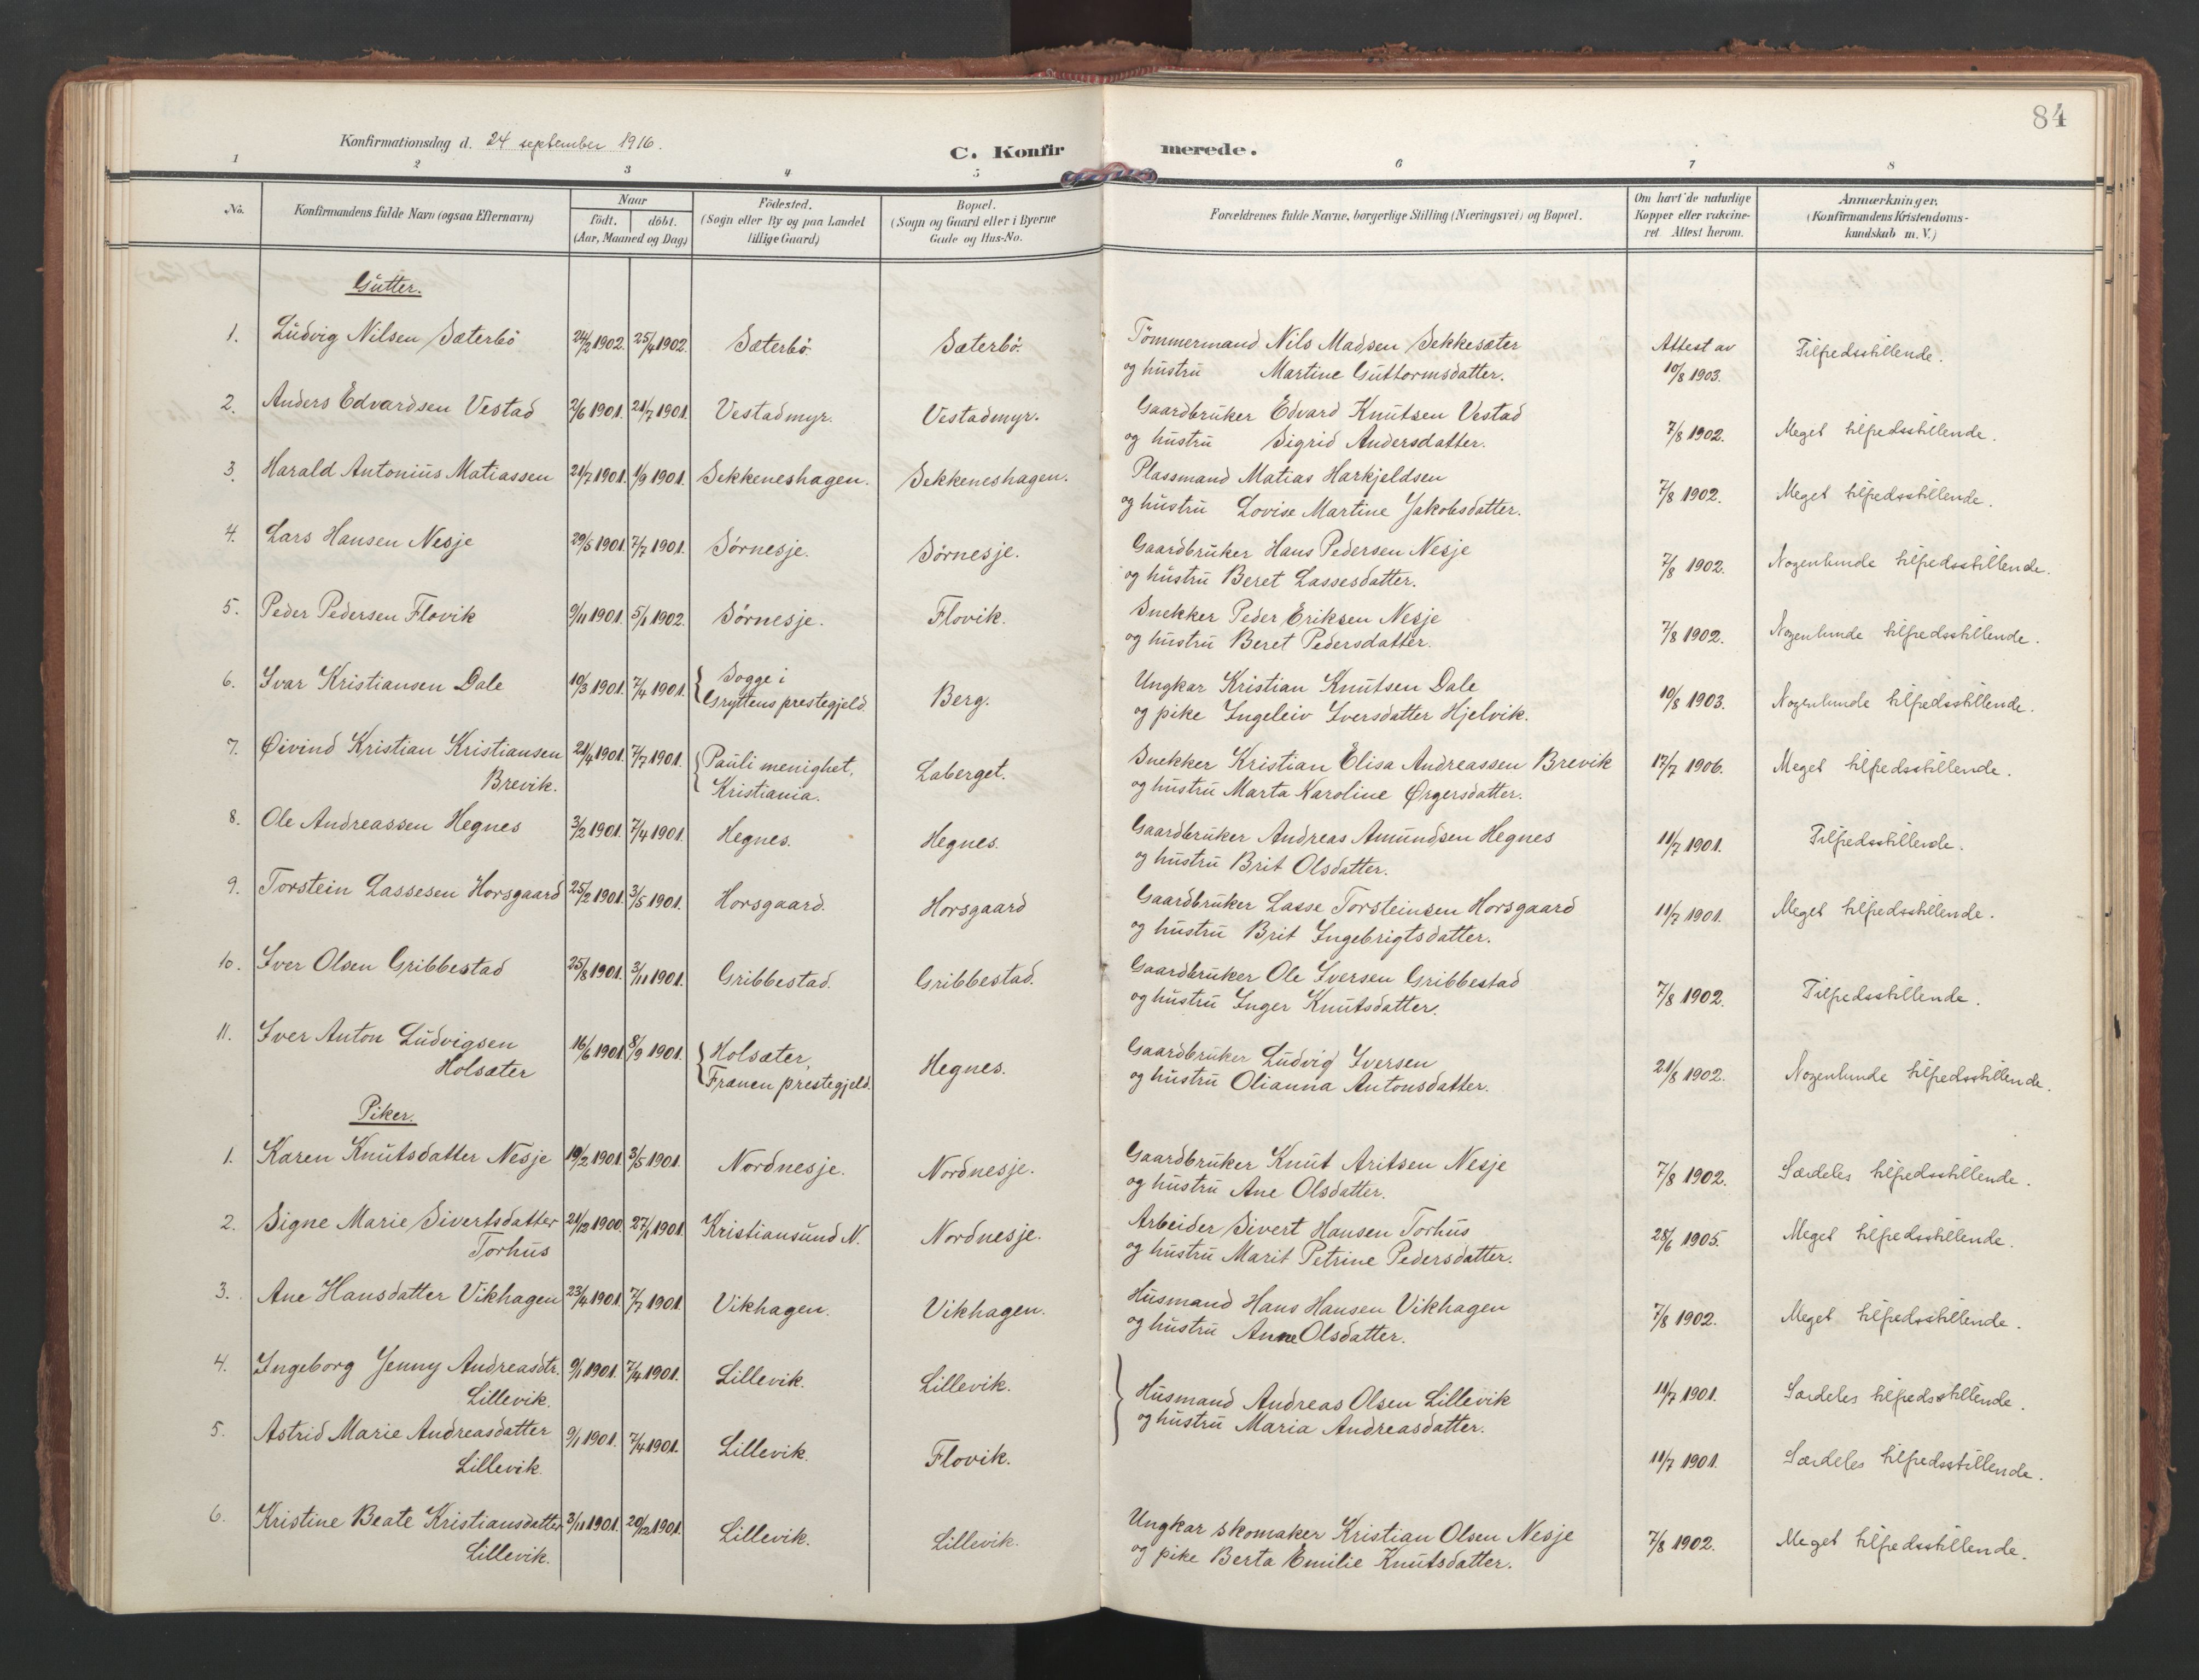 84
Konfirmationsdag d. 24 september 1916.
C. Konfirmerede.
1 2 3 4 5 6 7 8
No.
Konfirmandens fulde Navn (ogsaa Efternavn)
Naar
födt. döbt.
(Aar, Maaned og Dag)
Födested.
(Sogn eller By og paa Landet
tillige Gaard)
Bopæl.
(Sogn og Gaard eller i Byerne
Gade og Hus-No.
Forældrenes fulde Navne, borgerlige Stilling (Næringsvei) og Bopæl.
Om havt de naturlige
Kopper eller vakcine-
ret. Attest herom.
Anmærkninger.
(Konfirmandens Kristendoms-
kundskab m. V.)
Gutter.
1. Ludvig Nilsen Sæterbö 24/2 1902. 25/4 1902. Sæterbö. Sæterbö. Tömmermand Nils Madsen Sekkesæter Attest av Tilfredsstillende.
og hustru Martine Guttormsdatter. 10/8 1903.
2. Anders Edvardsen Vestad 2/6 1901. 21/7 1901. Vestadmyr. Vestadmyr. Gaardbruker Edvard Knutsen Vestad 7/8 1902. Meget tilfredsstillende.
og hustru Sigrid Andersdatter.
3. Harald Antonius Matiassen 21/7 1901. 1/9 1901. Sekkeneshagen. Sekkeneshagen. Plassmand Matias Harkjeldsen 7/8 1902. Meget tilfredsstillende.
og hustru Lovise Martine Jakobsdatter.
4. Lars Hansen Nesje 29/5 1901. 7/7 1901. Sörnesje. Sörnesje. Gaardbruker Hans Pedersen Nesje 7/8 1902. Nogenlunde tilfredsstillende.
og hustru Beret Lassesdatter.
5. Peder Pedersen Flovik 9/11 1901. 5/1 1902. Sörnesje. Flovik. Snekker Peder Eriksen Nesje 7/8 1902. Nogenlunde tilfredsstillende.
og hustru Beret Pedersdatter.
6. Ivar Kristiansen Dale 10/3 1901. 7/4 1901. Sogge i Berg. Ungkar Kristian Knutsen Dale 10/8 1903. Nogenlunde tilfredsstillende.
Gryttens prestegjeld. og pike Ingeleiv Iversdatter Hjelvik.
7. Øivind Kristian Kristiansen 21/4 1901. 7/7 1901. Pauli menighet, Laberget. Snekker Kristian Elisa Andreassen Brevik 17/7 1906. Meget tilfredsstillende.
Brevik. Kristiania. og hustru Marta Karoline Ørgersdatter.
8. Ole Andreassen Hegnes 3/2 1901. 7/4 1901. Hegnes. Hegnes. Gaardbruker Andreas Amundsen Hegnes 11/7 1901. Tilfredsstillende.
og hustru Brit Olsdatter.
9. Torstein Lassesen Horsgaard 25/2 1901. 3/5 1901. Horsgaard. Horsgaard Gaardbruker Lasse Torsteinsen Horsgaard 11/7 1901. Meget tilfredsstillende.
og hustru Brit Ingebrigtsdatter.
10. Iver Olsen Gribbestad 25/8 1901. 3/11 1901. Gribbestad. Gribbestad. Gaardbruker Ole Iversen Gribbestad 7/8 1902. Tilfredsstillende.
og hustru Inger Knutsdatter.
11. Iver Anton Ludvigsen 16/6 1901. 8/9 1901. Holsæter, Hegnes. Gaardbruker Ludvig Iversen 21/8 1902. Nogenlunde tilfredsstillende.
Holsæter Frænen prestegjeld. og hustru Olianna Antonsdatter.
Piker.
1. Karen Knutsdatter Nesje 19/2 1901. 3/5 1901. Nordnesje. Nordnesje. Gaardbruker Knut Aritsen Nesje 7/8 1902. Særdeles tilfredsstillende.
og hustru Ane Olsdatter.
2. Signe Marie Sivertsdatter 21/12 1900. 27/1 1901. Kristiansund N. Nordnesje. Arbeider Sivert Hansen Torhus 28/6 1905. Meget tilfredsstillende.
Torhus og hustru Marit Petrine Pedersdatter.
3. Ane Hansdatter Vikhagen 23/4 1901. 7/7 1901. Vikhagen. Vikhagen. Husmand Hans Hansen Vikhagen 7/8 1902. Meget tilfredsstillende.
og hustru Anne Olsdatter.
4. Ingeborg Jenny Andreasdtr. 9/1 1901. 7/4 1901. Lillevik. Lillevik. Husmand Andreas Olsen Lillevik 11/7 1901. Særdeles tilfredsstillende.
Lillevik. og hustru Maria Andreasdatter.
5. Astrid Marie Andreasdatter 9/1 1901. 7/4 1901. Lillevik. Flovik. 11/7 1901. Særdeles tilfredsstillende.
Lillevik.
6. Kristine Beate Kristiansdatter 3/11 1901. 20/12 1901. Lillevik. Lillevik. Ungkar skomaker Kristian Olsen Nesje 7/8 1902. Meget tilfredsstillende.
Lillevik. og pike Berta Emilie Knutsdatter.